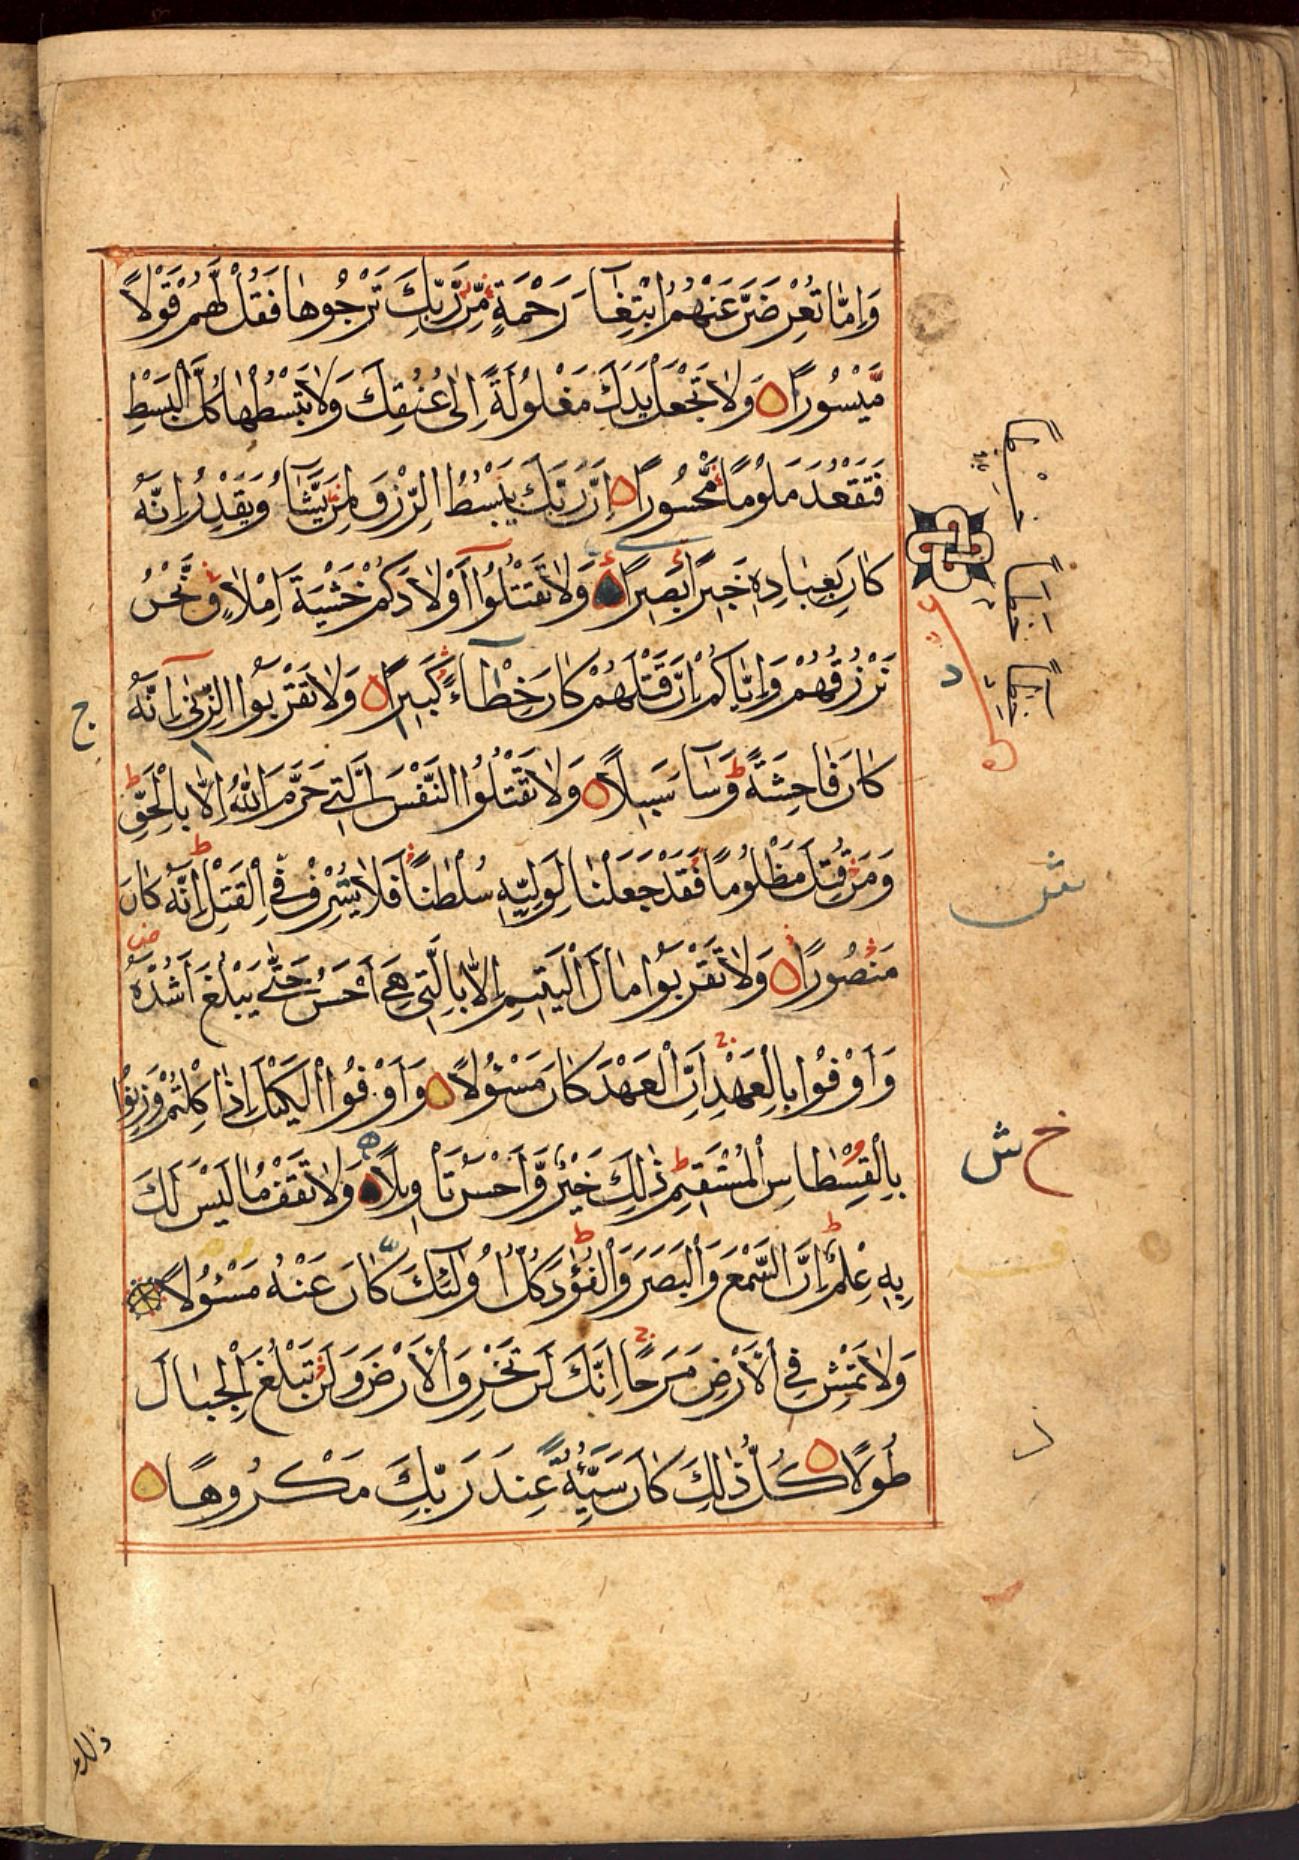 وَاِمَّا تُعْرِضَنَّ عَنْهُمُ ابْتِغَآءَ رَحْمَةٍ مِّنْ رَّبِّكَ تَرْجُوهَا فَقُلْ لَّهُمْ قَوْلًا
مَّيْسُورًا ۝ وَلَا تَجْعَلْ يَدَكَ مَغْلُولَةً اِلٰى عُنُقِكَ وَلَا تَبْسُطْهَا كُلَّ الْبَسْطِ
فَتَقْعُدَ مَلُومًا مَّحْسُورًا ۝ اِنَّ رَبَّكَ يَبْسُطُ الرِّزْقَ لِمَنْ يَّشَآءُ وَيَقْدِرُ اِنَّهُ
كَانَ بِعِبَادِهِ خَبِيرًا بَصِيرًا ۝ وَلَا تَقْتُلُوٓا اَوْلَادَكُمْ خَشْيَةَ اِمْلَاقٍ نَّحْنُ
نَرْزُقُهُمْ وَاِيَّاكُمْ اِنَّ قَتْلَهُمْ كَانَ خِطْـَٔاءً كَبِيرًا ۝ وَلَا تَقْرَبُوا الزِّنٰىٓ اِنَّهُ
كَانَ فَاحِشَةً وَسَآءَ سَبِيلًا ۝ وَلَا تَقْتُلُوا النَّفْسَ الَّتِي حَرَّمَ اللّٰهُ اِلَّا بِالْحَقِّ
وَمَنْ قُتِلَ مَظْلُومًا فَقَدْ جَعَلْنَا لِوَلِيِّهِ سُلْطَانًا فَلَا يُسْرِفْ فِي الْقَتْلِ اِنَّهُ كَانَ
مَنْصُورًا ۝ وَلَا تَقْرَبُوا مَالَ الْيَتِيمِ اِلَّا بِالَّتِي هِيَ اَحْسَنُ حَتّٰى يَبْلُغَ اَشُدَّهُ
وَاَوْفُوا بِالْعَهْدِ اِنَّ الْعَهْدَ كَانَ مَسْئُولًا ۝ وَاَوْفُوا الْكَيْلَ اِذَا كِلْتُمْ وَزِنُوا
بِالْقِسْطَاسِ الْمُسْتَقِيمِ ذٰلِكَ خَيْرٌ وَّاَحْسَنُ تَاْوِيلًا ۝ وَلَا تَقْفُ مَا لَيْسَ لَكَ
بِهِ عِلْمٌ اِنَّ السَّمْعَ وَالْبَصَرَ وَالْفُؤَادَ كُلُّ اُولٰٓئِكَ كَانَ عَنْهُ مَسْئُولًا ۝
وَلَا تَمْشِ فِي الْاَرْضِ مَرَحًا اِنَّكَ لَنْ تَخْرِقَ الْاَرْضَ وَلَنْ تَبْلُغَ الْجِبَالَ
طُولًا ۝ كُلُّ ذٰلِكَ كَانَ سَيِّئُهُ عِنْدَ رَبِّكَ مَكْرُوهًا ۝
ج
خ ش
ذلك